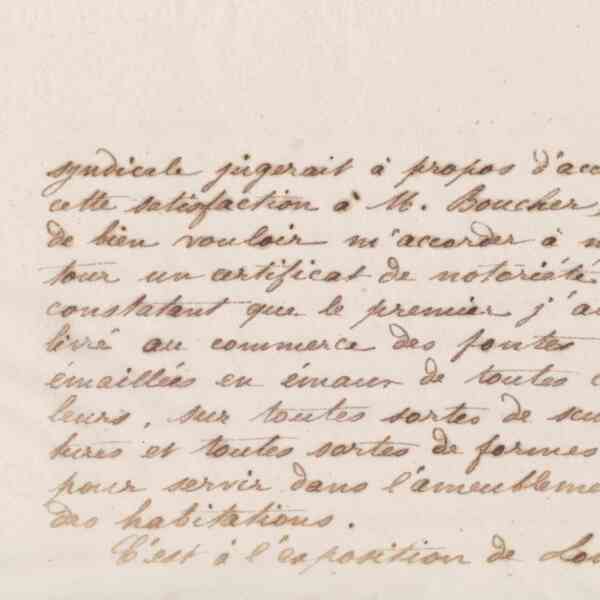 syndicale jugerait à propos d'acc
cette satisfaction à M. Boucher,
de bien vouloir m'accorder à m
tour un certificat de notoriété
constatant que le premier j'a
livré au commerce des fontes
émaillées en émaux de toutes c
leurs, sur toutes sortes de scu
tures et toutes sortes de formes
pour servir dans l'ameubleme
des habitations.
C'est à l'exposition de Lon